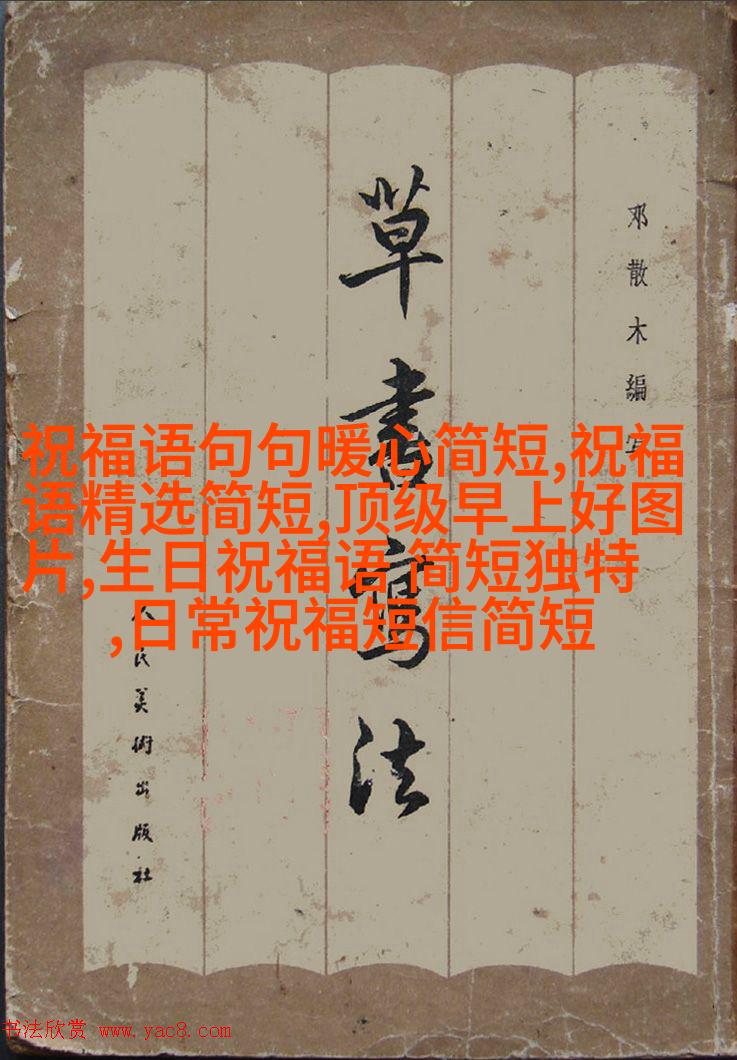 草書寫法
邓散木編写
人民美術出版社
祝福语句句暖心简短,祝福
语精选简短,顶级早上好图
片,生日祝福语 简短独特
,日常祝福短信简短
书法欣赏 www.yac8.com